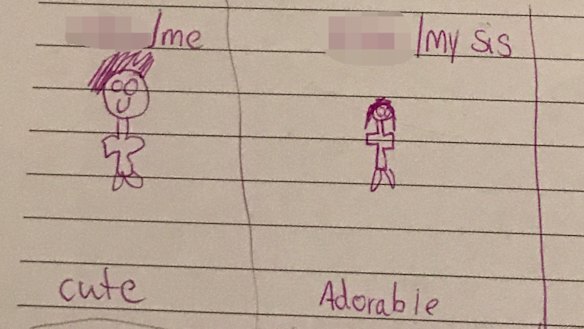 /me
/my sis
cute
Adorable